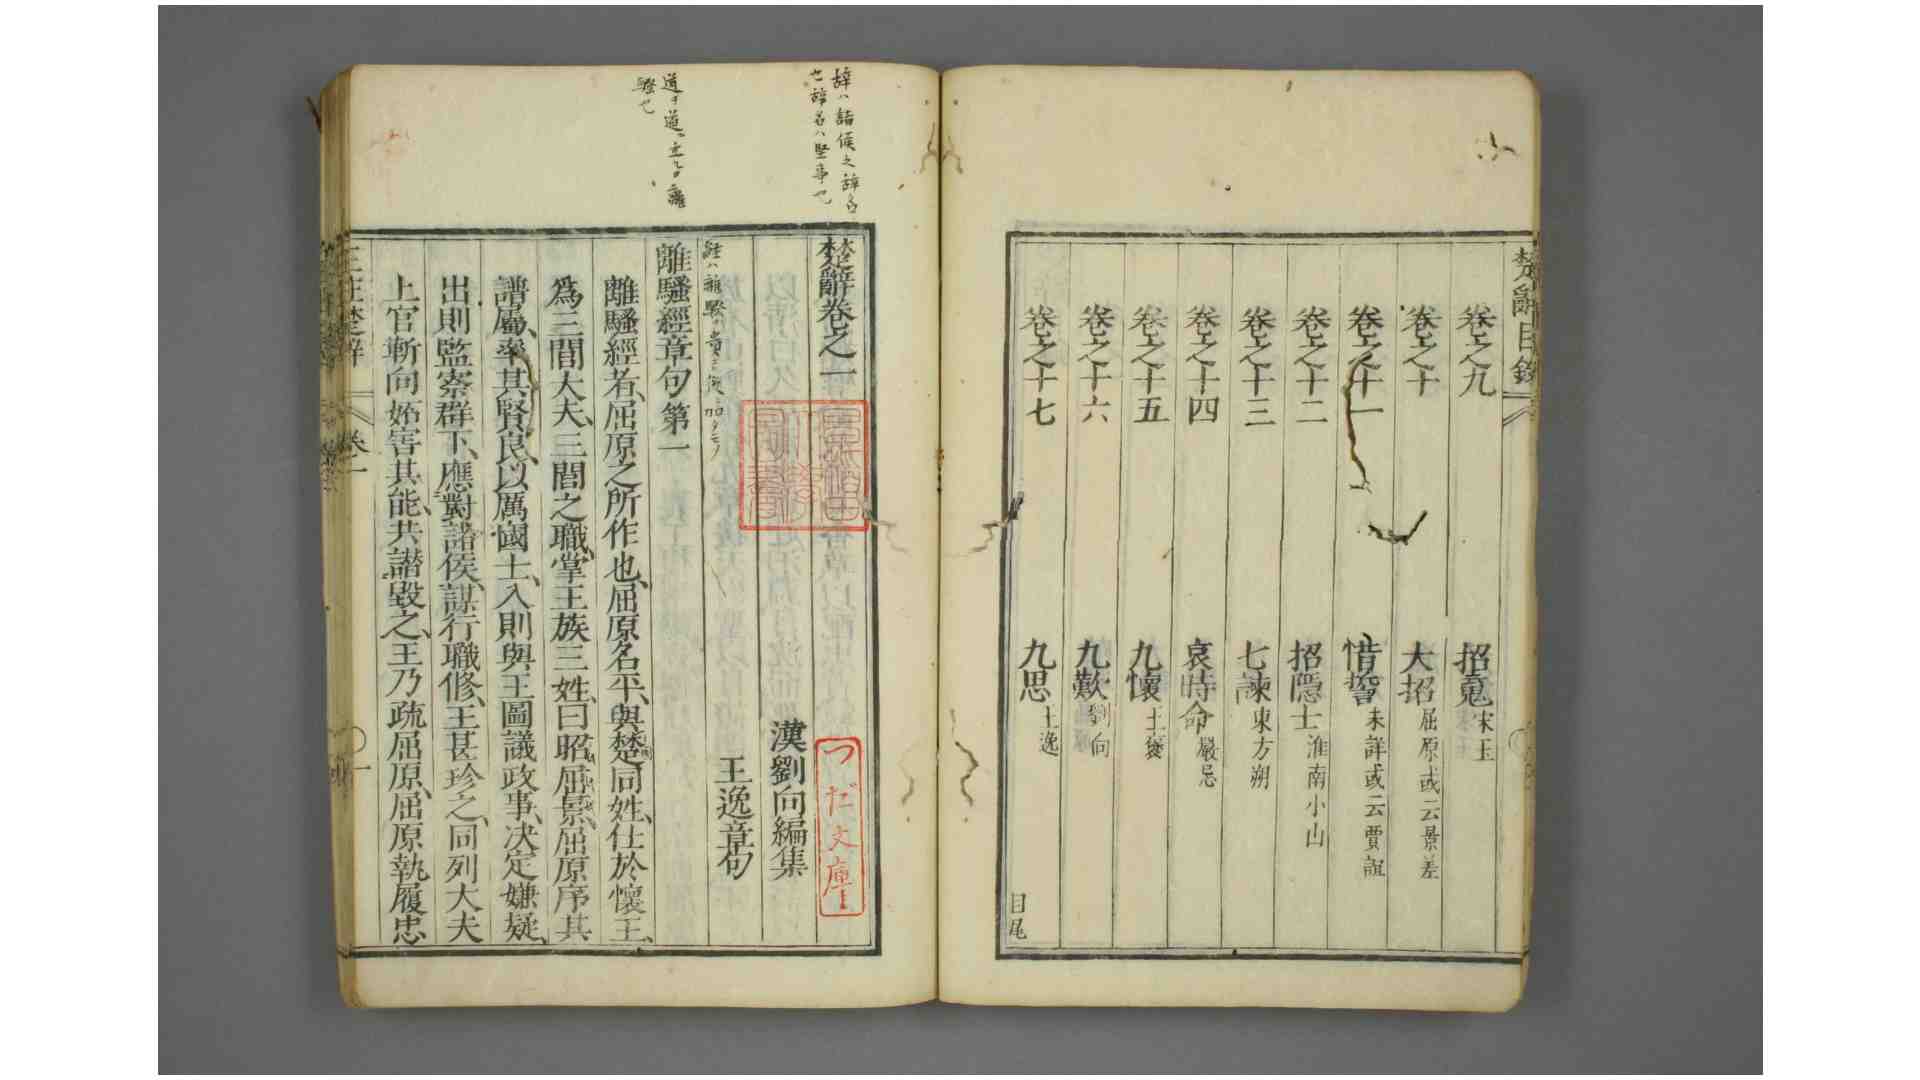 楚辭目錄
卷之九 招䰟宋玉
卷之十 大招屈原或云景差
卷之十一 惜誓未詳或云賈誼
卷之十二 招隱士淮南小山
卷之十三 七諫東方朔
卷之十四 哀時命嚴忌
卷之十五 九懷王襃
卷之十六 九歎劉向
卷之十七 九思王逸
目尾
辭ハ諸侯之辞名
也辞名ハ堅事也
楚辭卷之一
漢劉向編集
王逸章句
つだ文庫
離騷經章句第一
離騷經者、屈原之所作也、屈原名平、與楚同姓、仕於懷王、
爲三閭大夫、三閭之職、掌王族三姓、曰昭屈景、屈原序其
譜屬、率其賢良、以厲國士、入則與王圖議政事、决定嫌疑、
出則監察群下、應對諸侯、謀行職修、王甚珍之、同列大夫
上官靳尚妬害其能、共譖毀之、王乃疏屈原、屈原執履忠
王注楚辭 卷一 〇一